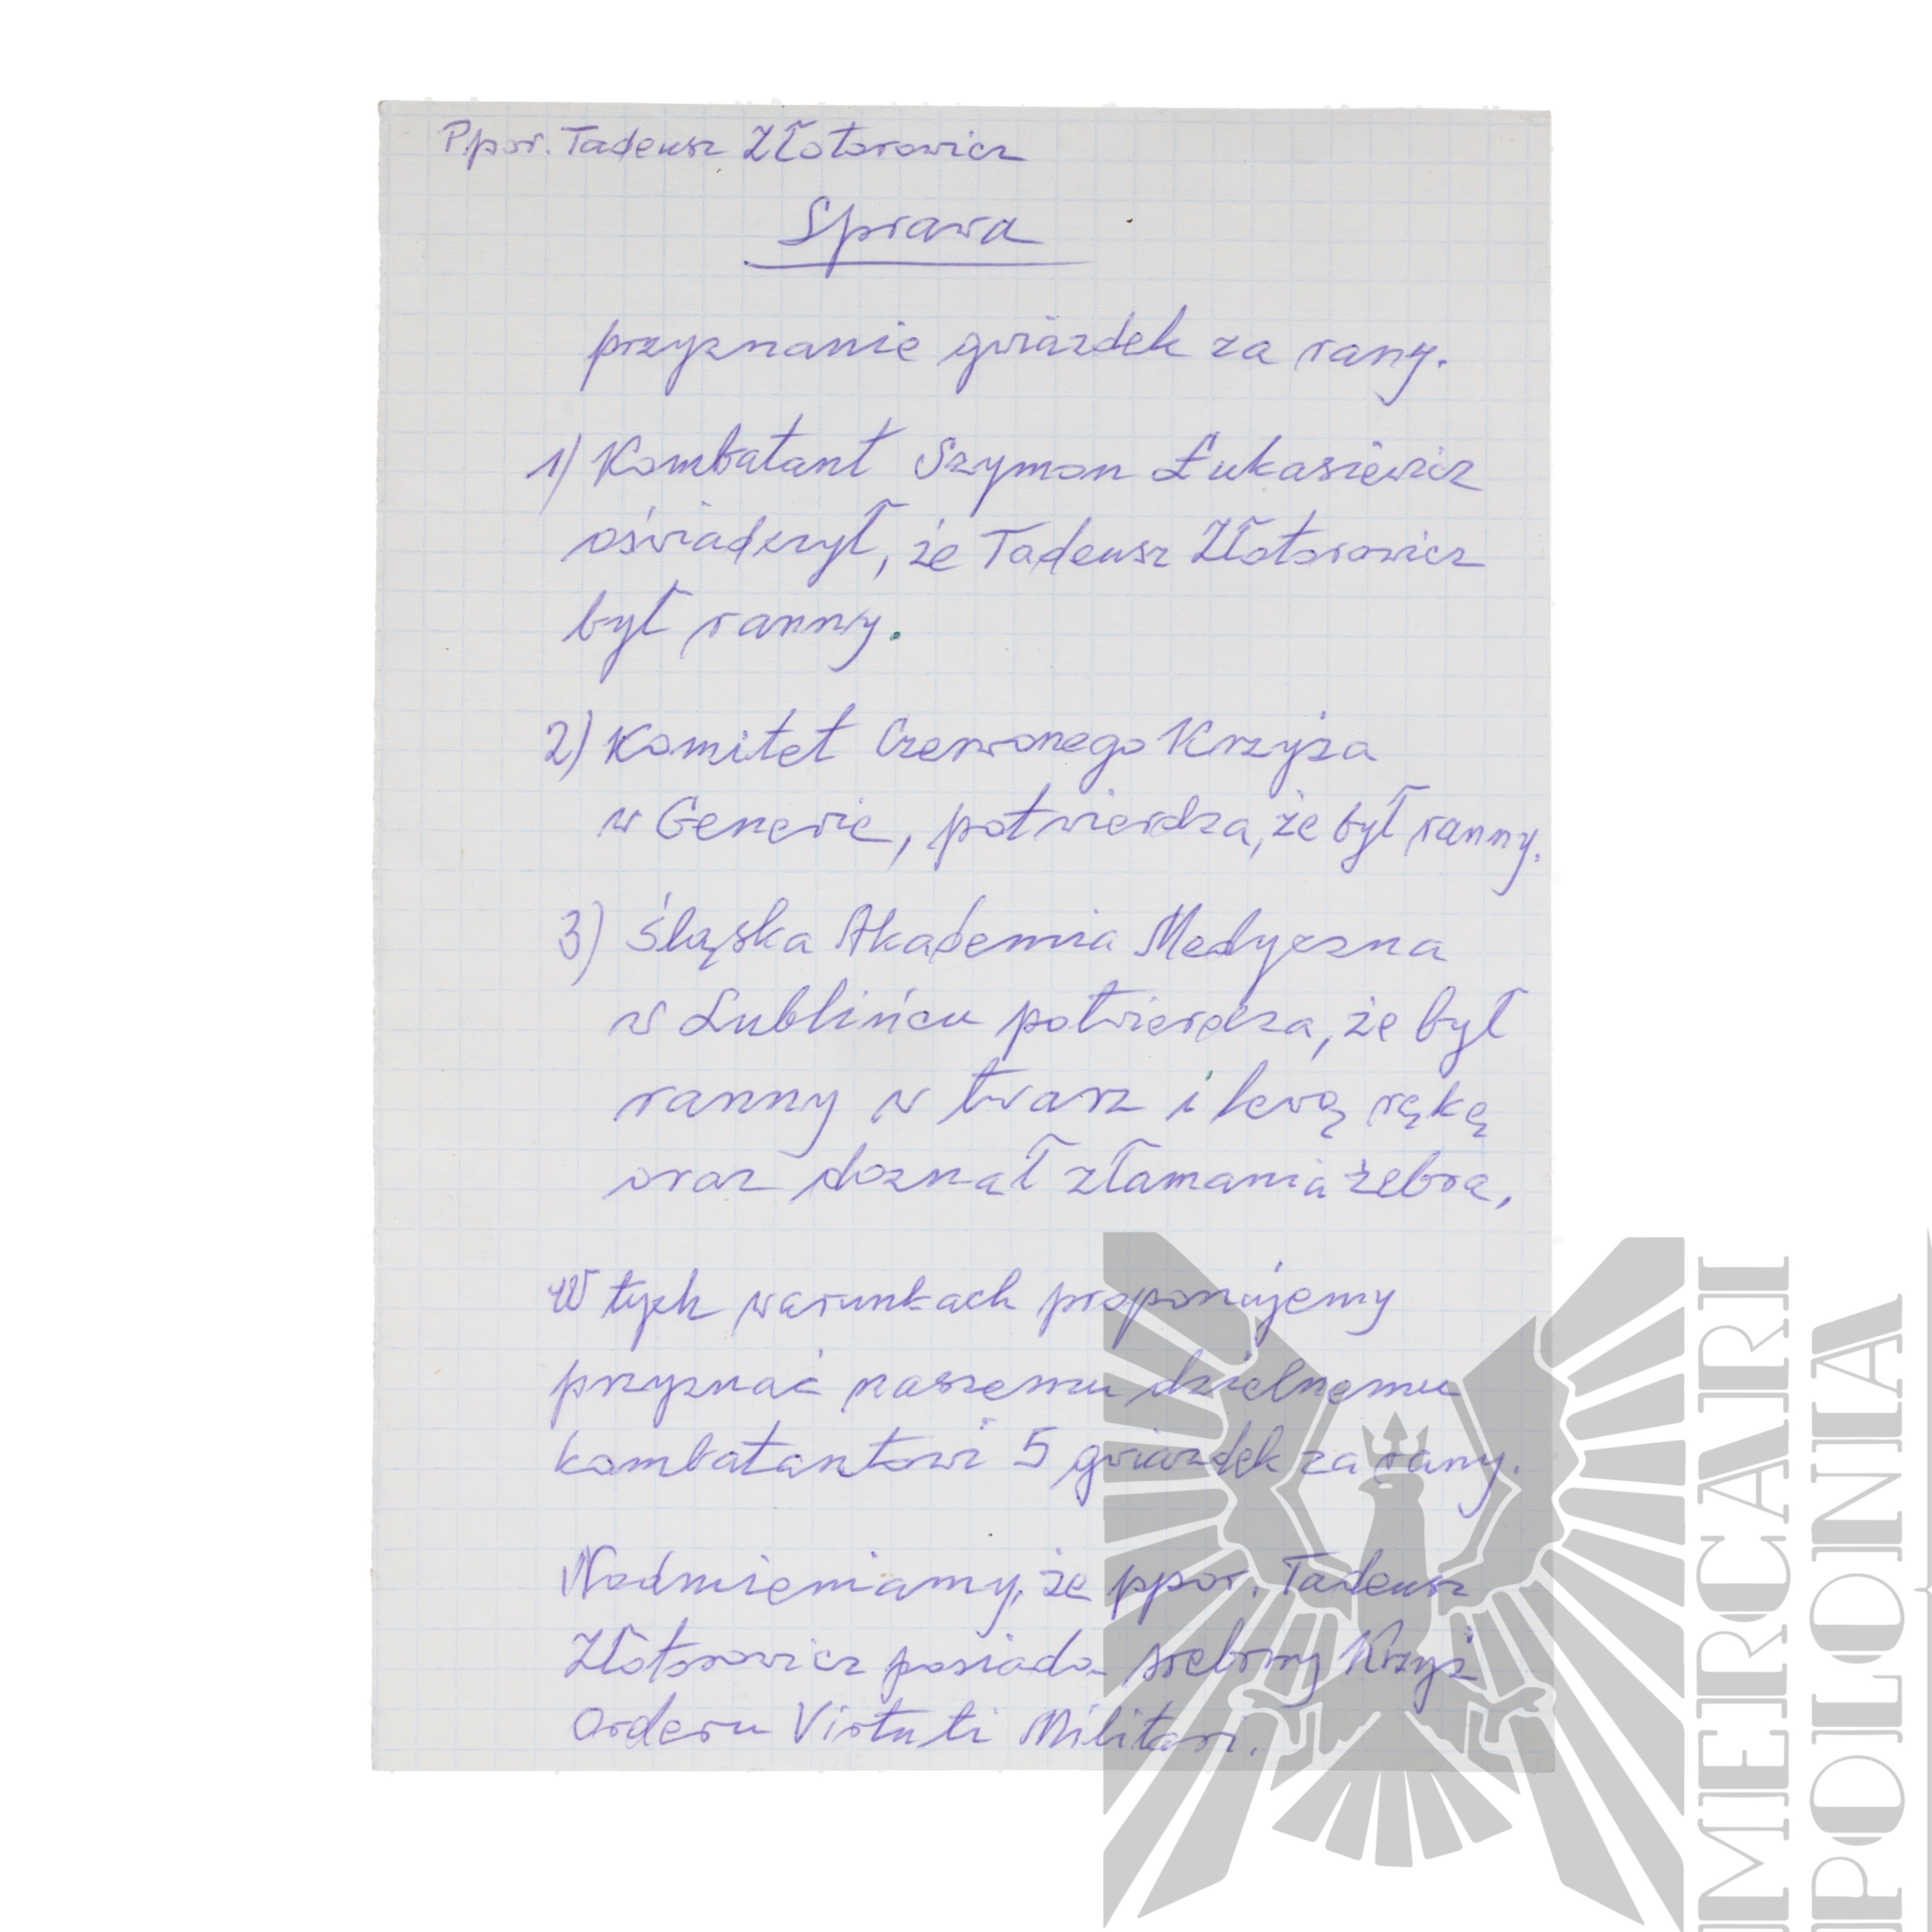 P.por. Tadeusz Złotorowicz
Sprawa
przyznanie gwiazdek za rany.
1) Kombatant Szymon Łukasiewicz
oświadczył, że Tadeusz Złotorowicz
był ranny.
2) Komitet Czerwonego Krzyża
w Genewie, potwierdza, że był ranny.
3) Śląska Akademia Medyczna
w Lublińcu potwierdza, że był
ranny w twarz i lewą rękę
oraz doznał złamania żebra,
W tych warunkach proponujemy
przyznać naszemu dzielnemu
kombatantowi 5 gwiazdek za rany.
Nadmieniamy, że ppor. Tadeusz
Złotorowicz posiada srebrny Krzyż
Orderu Virtuti Militari.
MERCARI
POLONIA